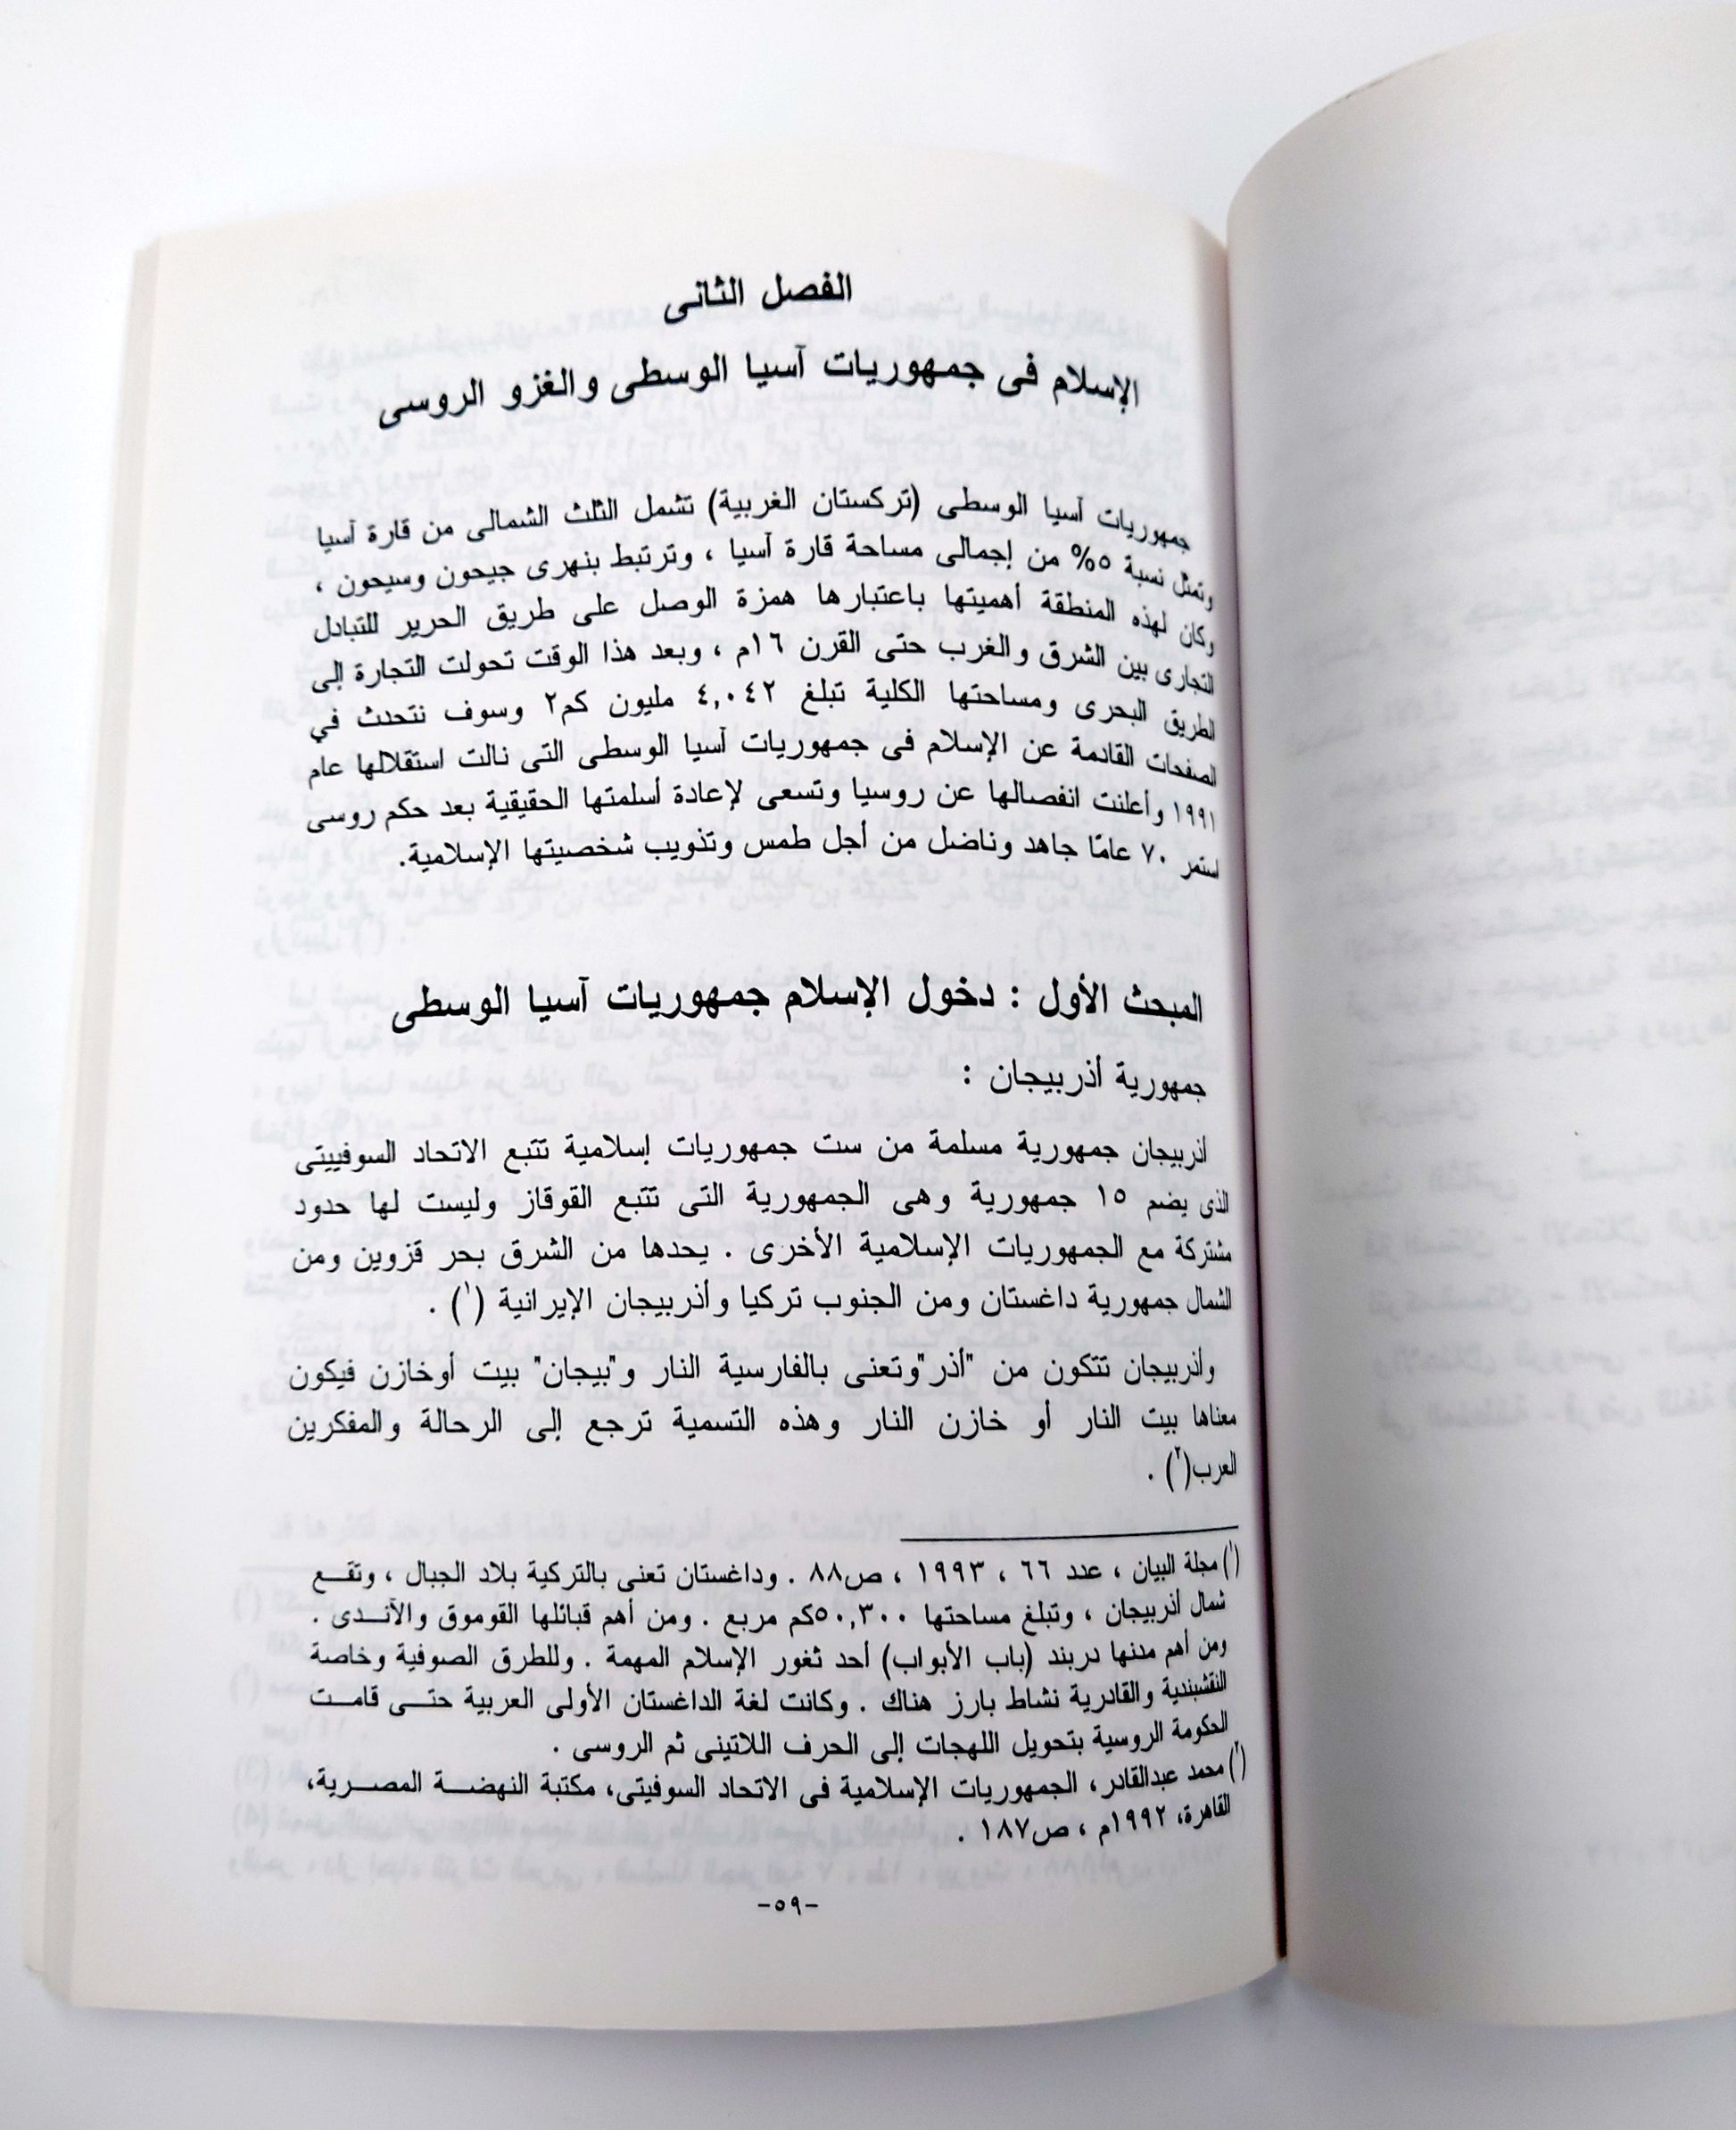 الفصل الثانى
الإسلام فى جمهوريات آسيا الوسطى والغزو الروسى
جمهوريات آسيا الوسطى (تركستان الغربية) تشمل الثلث الشمالى من قارة آسيا
وتمثل نسبة ٥% من إجمالى مساحة قارة آسيا ، وترتبط بنهرى جيحون وسيحون ،
وكان لهذه المنطقة أهميتها باعتبارها همزة الوصل على طريق الحرير للتبادل
التجارى بين الشرق والغرب حتى القرن ١٦م ، وبعد هذا الوقت تحولت التجارة إلى
الطريق البحرى ومساحتها الكلية تبلغ ٤,٠٤٢ مليون كم٢ وسوف نتحدث في
الصفحات القادمة عن الإسلام فى جمهوريات آسيا الوسطى التى نالت استقلالها عام
١٩٩١ وأعلنت انفصالها عن روسيا وتسعى لإعادة أسلمتها الحقيقية بعد حكم روسى
استمر ٧٠ عامًا جاهد وناضل من أجل طمس وتذويب شخصيتها الإسلامية.
المبحث الأول : دخول الإسلام جمهوريات آسيا الوسطى
جمهورية أذربيجان :
أذربيجان جمهورية مسلمة من ست جمهوريات إسلامية تتبع الاتحاد السوفييتى
الذى يضم ١٥ جمهورية وهى الجمهورية التى تتبع القوقاز وليست لها حدود
مشتركة مع الجمهوريات الإسلامية الأخرى . يحدها من الشرق بحر قزوين ومن
الشمال جمهورية داغستان ومن الجنوب تركيا وأذربيجان الإيرانية (١) .
وأذربيجان تتكون من "أذر"وتعنى بالفارسية النار و"بيجان" بيت أوخازن فيكون
معناها بيت النار أو خازن النار وهذه التسمية ترجع إلى الرحالة والمفكرين
العرب(٢) .
(١) مجلة البيان ، عدد ٦٦ ، ١٩٩٣ ، ص٨٨ . وداغستان تعنى بالتركية بلاد الجبال ، وتقـــع
شمال أذربيجان ، وتبلغ مساحتها ٥٠,٣٠٠كم مربع . ومن أهم قبائلها القوموق والآنــدى .
ومن أهم مدنها دربند (باب الأبواب) أحد ثغور الإسلام المهمة . وللطرق الصوفية وخاصة
النقشبندية والقادرية نشاط بارز هناك . وكانت لغة الداغستان الأولى العربية حتــى قامــت
الحكومة الروسية بتحويل اللهجات إلى الحرف اللاتينى ثم الروسى .
(٢) محمد عبدالقادر، الجمهوريات الإسلامية فى الاتحاد السوفيتى، مكتبة النهضــة المصــرية،
القاهرة، ١٩٩٢م ، ص١٨٧ .
-٥٩-